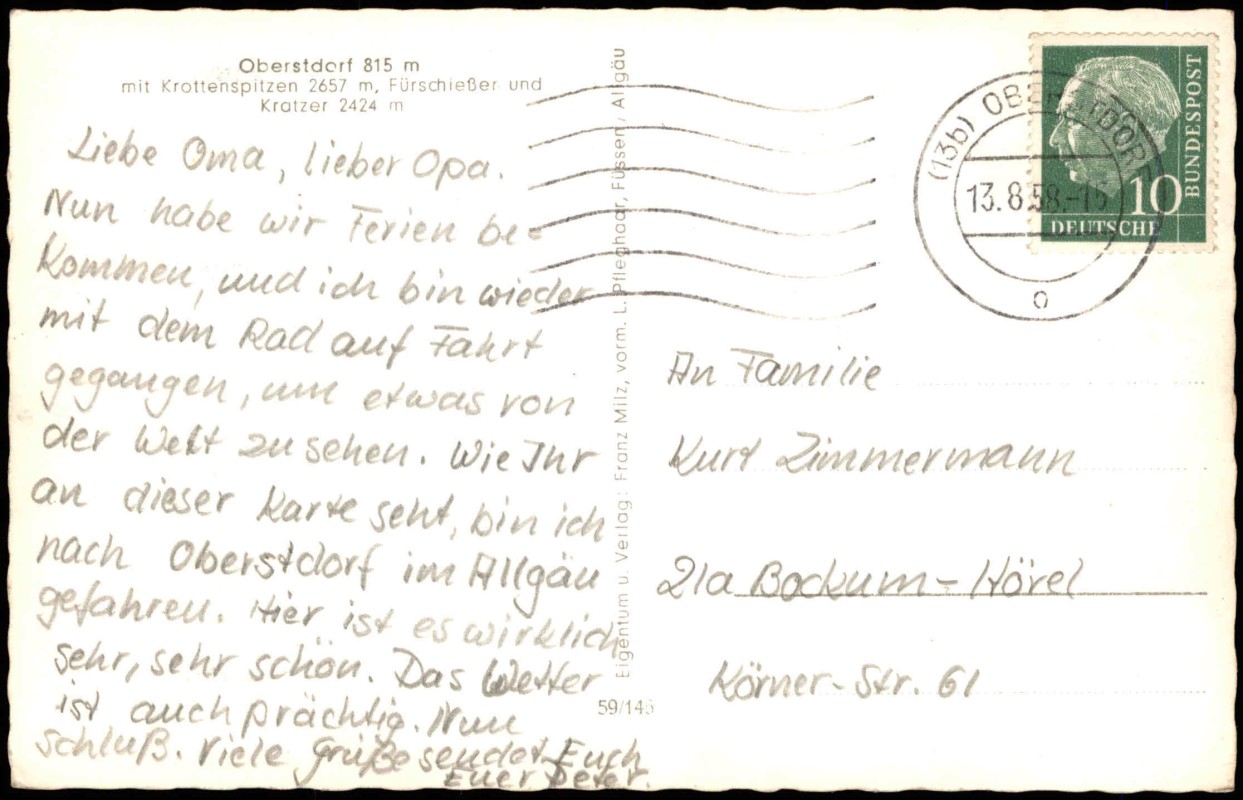 Oberstdorf 815 m
mit Krottenspitzen 2657 m, Fürschießer und
Kratzer 2424 m
Liebe Oma, lieber Opa.
Nun habe wir Ferien be=
kommen, und ich bin wieder
mit dem Rad auf Fahrt
gegangen, um etwas von
der Welt zu sehen. Wie Ihr
an dieser Karte seht, bin ich
nach Oberstdorf im Allgäu
gefahren. Hier ist es wirklich
sehr, sehr schön. Das Wetter
ist auch prächtig. Nun
schluß. Viele Grüße sendet Euch
Euer Peter.
Eigentum u. Verlag: Franz Milz, vorm. L. Pfleghaar, Füssen / Allgäu
59/146
(13b) OBERSTDORF
13.8.58.-15
o
10
DEUTSCHE
BUNDESPOST
An Familie
Kurt Zimmermann
21a Bockum-Hövel
Körner-Str. 61